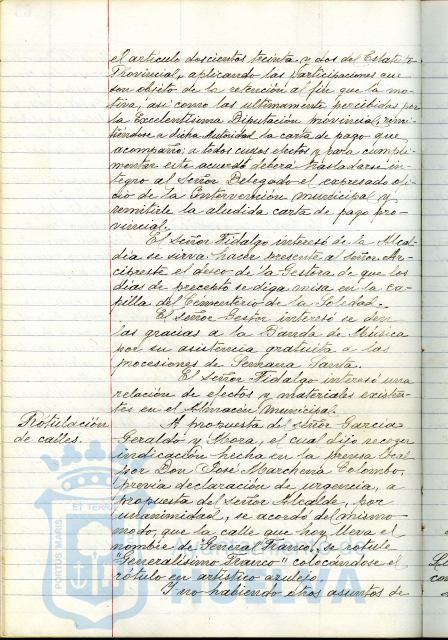 el artículo doscientos treinta y dos del Estatuto
Provincial, aplicando las participaciones que
son objeto de la retención al fin que la mo-
tiva, así como las ultimamente percibidas por
la Excelentísima Diputación provincial, remi-
tiéndose a dicha Autoridad la carta de pago que
acompaño; a todos cuyos efectos y para cumpli-
mentar este acuerdo deberá trasladarse ín-
tegro al Señor Delegado el expresado ofi-
cio de la Intervención municipal y
remitirle la aludida carta de pago pro-
vincial.
El Señor Fidalgo interesó de la Alcal-
día se sirva hacer presente al Señor Ar-
cipreste el deseo de la Gestora de que los
días de precepto se diga misa en la ca-
pilla del Cementerio de la Soledad.
El Señor Gestor interesó se den
las gracias a la Banda de Música
por su asistencia gratuita a las
procesiones de Semana Santa.
El Señor Fidalgo interesó una
relación de efectos y materiales existen-
tes en el Almacén municipal.
Rotulación
de calles.
A propuesta del Señor García
Geraldo y Mora, el cual dijo recoger
indicación hecha en la prensa local
por Don José Marchena Colombo,
previa declaración de urgencia, a
propuesta del Señor Alcalde, por
unanimidad, se acordó del mismo
modo, que la calle que hoy lleva el
nombre de General Franco, se rotule
"Generalísimo Franco" colocándose el
rótulo en artístico azulejo.
Y no habiendo otros asuntos de
PORTUS MARIS
ET TERRÆ
HUELVA